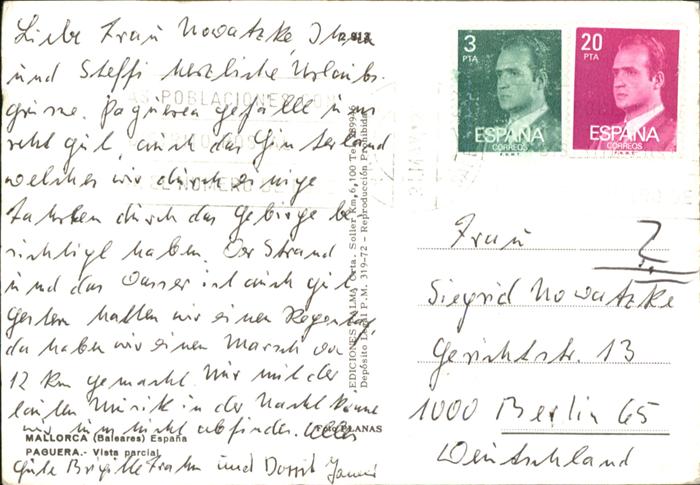 Liebe Frau Nowatzke, Ihnen
und Steffi herzliche Urlaubs-
grüsse. Paguera gefällt uns
recht gut, auch das Hinterland
welches wir durch einige
Fahrten durch das Gebirge be
sichtigt haben. Der Strand
und das Wasser ist auch gut
Gestern hatten wir einen Regentag,
da haben wir einen Marsch von
12 km gemacht. Nur mit der
lauten Musik in der Nacht können
wir uns nicht abfinden. Alles
Gute Brigitte und Dorrit
MALLORCA (Baleares) España
PAGUERA.- Vista parcial
Foto PLANAS
EDICIONES PALMA Ctra. Soller Km. 6,100 Tel.
Depósito Legal P.M. 319-72 - Reproducción Prohibida
POBLACIONES CON
EL NUMERO DE
3
PTA
ESPAÑA
CORREOS
20
PTA
ESPAÑA
CORREOS
Frau
Siegrid Nowatzke
Gerichtstr. 13
1000 Berlin 65
Deutschland